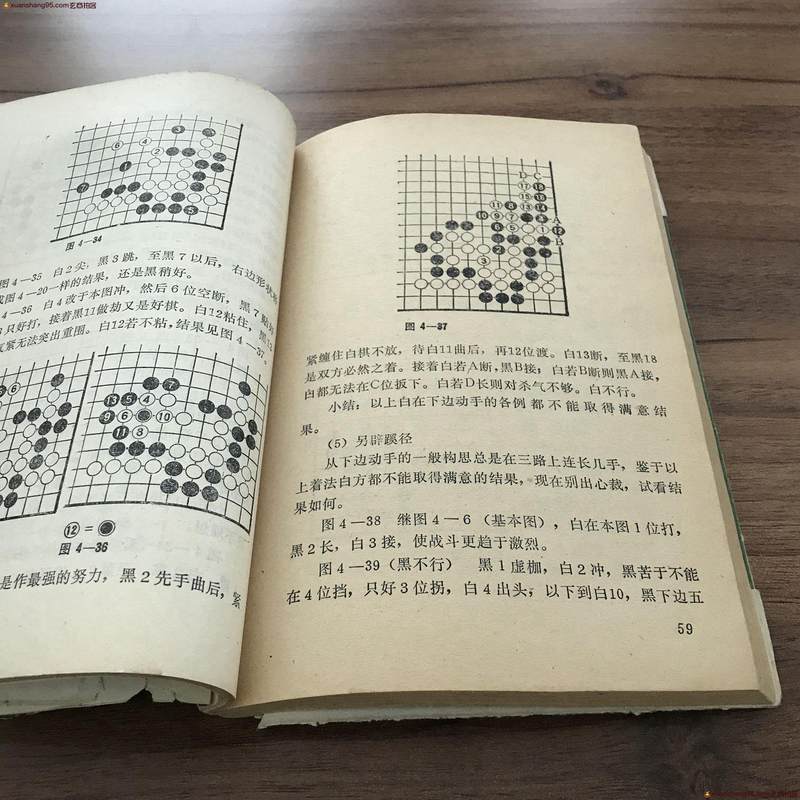 xuanshang95.com 玄酉拍品
图 4—34
图 4—35 白2尖，黑3跳，至黑7以后，右边形状
成图 4—20一样的结果，还是黑稍好。
4—36 白4改于本图冲，然后6位空断，黑7
只好打，接着黑11做劫又是好棋。白12粘住，黑
气紧无法突出重围。白12若不粘，结果见图 4—37。
⑫ =
图 4—36
是作最强的努力，黑2先手曲后，紧
D C
A
B
图 4—37
紧缠住白棋不放，待白11曲后，再12位渡。白13断，至黑18
是双方必然之着。接着白若A断，黑B接；白若B断则黑A接，
白都无法在C位扳下。白若D长则对杀气不够。白不行。
小结：以上白在下边动手的各例都不能取得满意结
果。
（5）另辟蹊径
从下边动手的一般构思总是在三路上连长几手，鉴于以
上着法白方都不能取得满意的结果，现在别出心裁，试看结
果如何。
图 4—38 继图 4—6（基本图），白在本图1位打，
黑2长，白3接，使战斗更趋于激烈。
图 4—39（黑不行） 黑1虚枷，白2冲，黑苦于不能
在4位挡，只好3位拐，白4出头，以下到白10，黑下边五
59